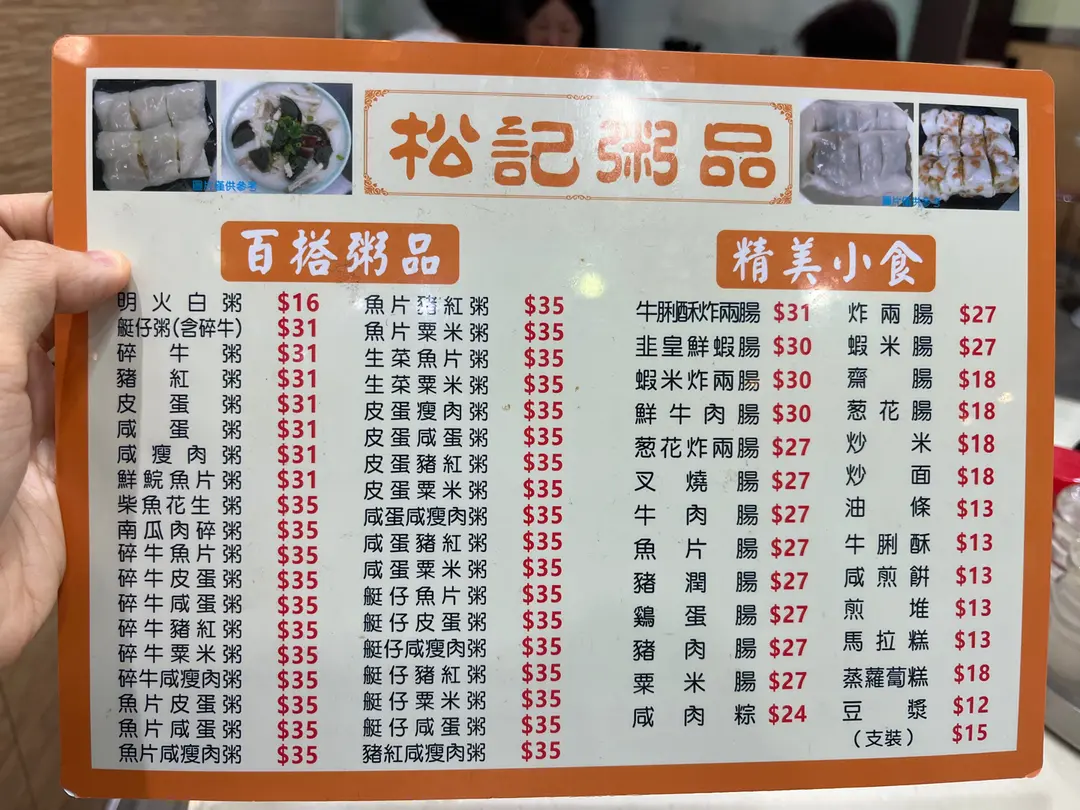 松記粥品
圖片僅供參考
圖片僅供參考
百搭粥品
明火白粥 $16
艇仔粥(含碎牛) $31
碎牛粥 $31
豬紅粥 $31
皮蛋粥 $31
咸蛋粥 $31
咸瘦肉粥 $31
鮮鯇魚片粥 $31
柴魚花生粥 $35
南瓜肉碎粥 $35
碎牛魚片粥 $35
碎牛皮蛋粥 $35
碎牛咸蛋粥 $35
碎牛豬紅粥 $35
碎牛粟米粥 $35
碎牛咸瘦肉粥 $35
魚片皮蛋粥 $35
魚片咸蛋粥 $35
魚片咸瘦肉粥 $35
魚片豬紅粥 $35
魚片粟米粥 $35
生菜魚片粥 $35
生菜粟米粥 $35
皮蛋瘦肉粥 $35
皮蛋咸蛋粥 $35
皮蛋豬紅粥 $35
皮蛋粟米粥 $35
咸蛋咸瘦肉粥 $35
咸蛋豬紅粥 $35
咸蛋粟米粥 $35
艇仔魚片粥 $35
艇仔皮蛋粥 $35
艇仔咸瘦肉粥 $35
艇仔豬紅粥 $35
艇仔粟米粥 $35
艇仔咸蛋粥 $35
豬紅咸瘦肉粥 $35
精美小食
牛脷酥炸兩腸 $31
韭皇鮮蝦腸 $30
蝦米炸兩腸 $30
鮮牛肉腸 $30
葱花炸兩腸 $27
叉燒腸 $27
牛肉腸 $27
魚片腸 $27
豬潤腸 $27
鷄蛋腸 $27
豬肉腸 $27
粟米腸 $27
咸肉粽 $24
炸兩腸 $27
蝦米腸 $27
齋腸 $18
葱花腸 $18
炒米 $18
炒面 $18
油條 $13
牛脷酥 $13
咸煎餅 $13
煎堆 $13
馬拉糕 $13
蒸蘿蔔糕 $18
豆漿 $12
(支裝) $15